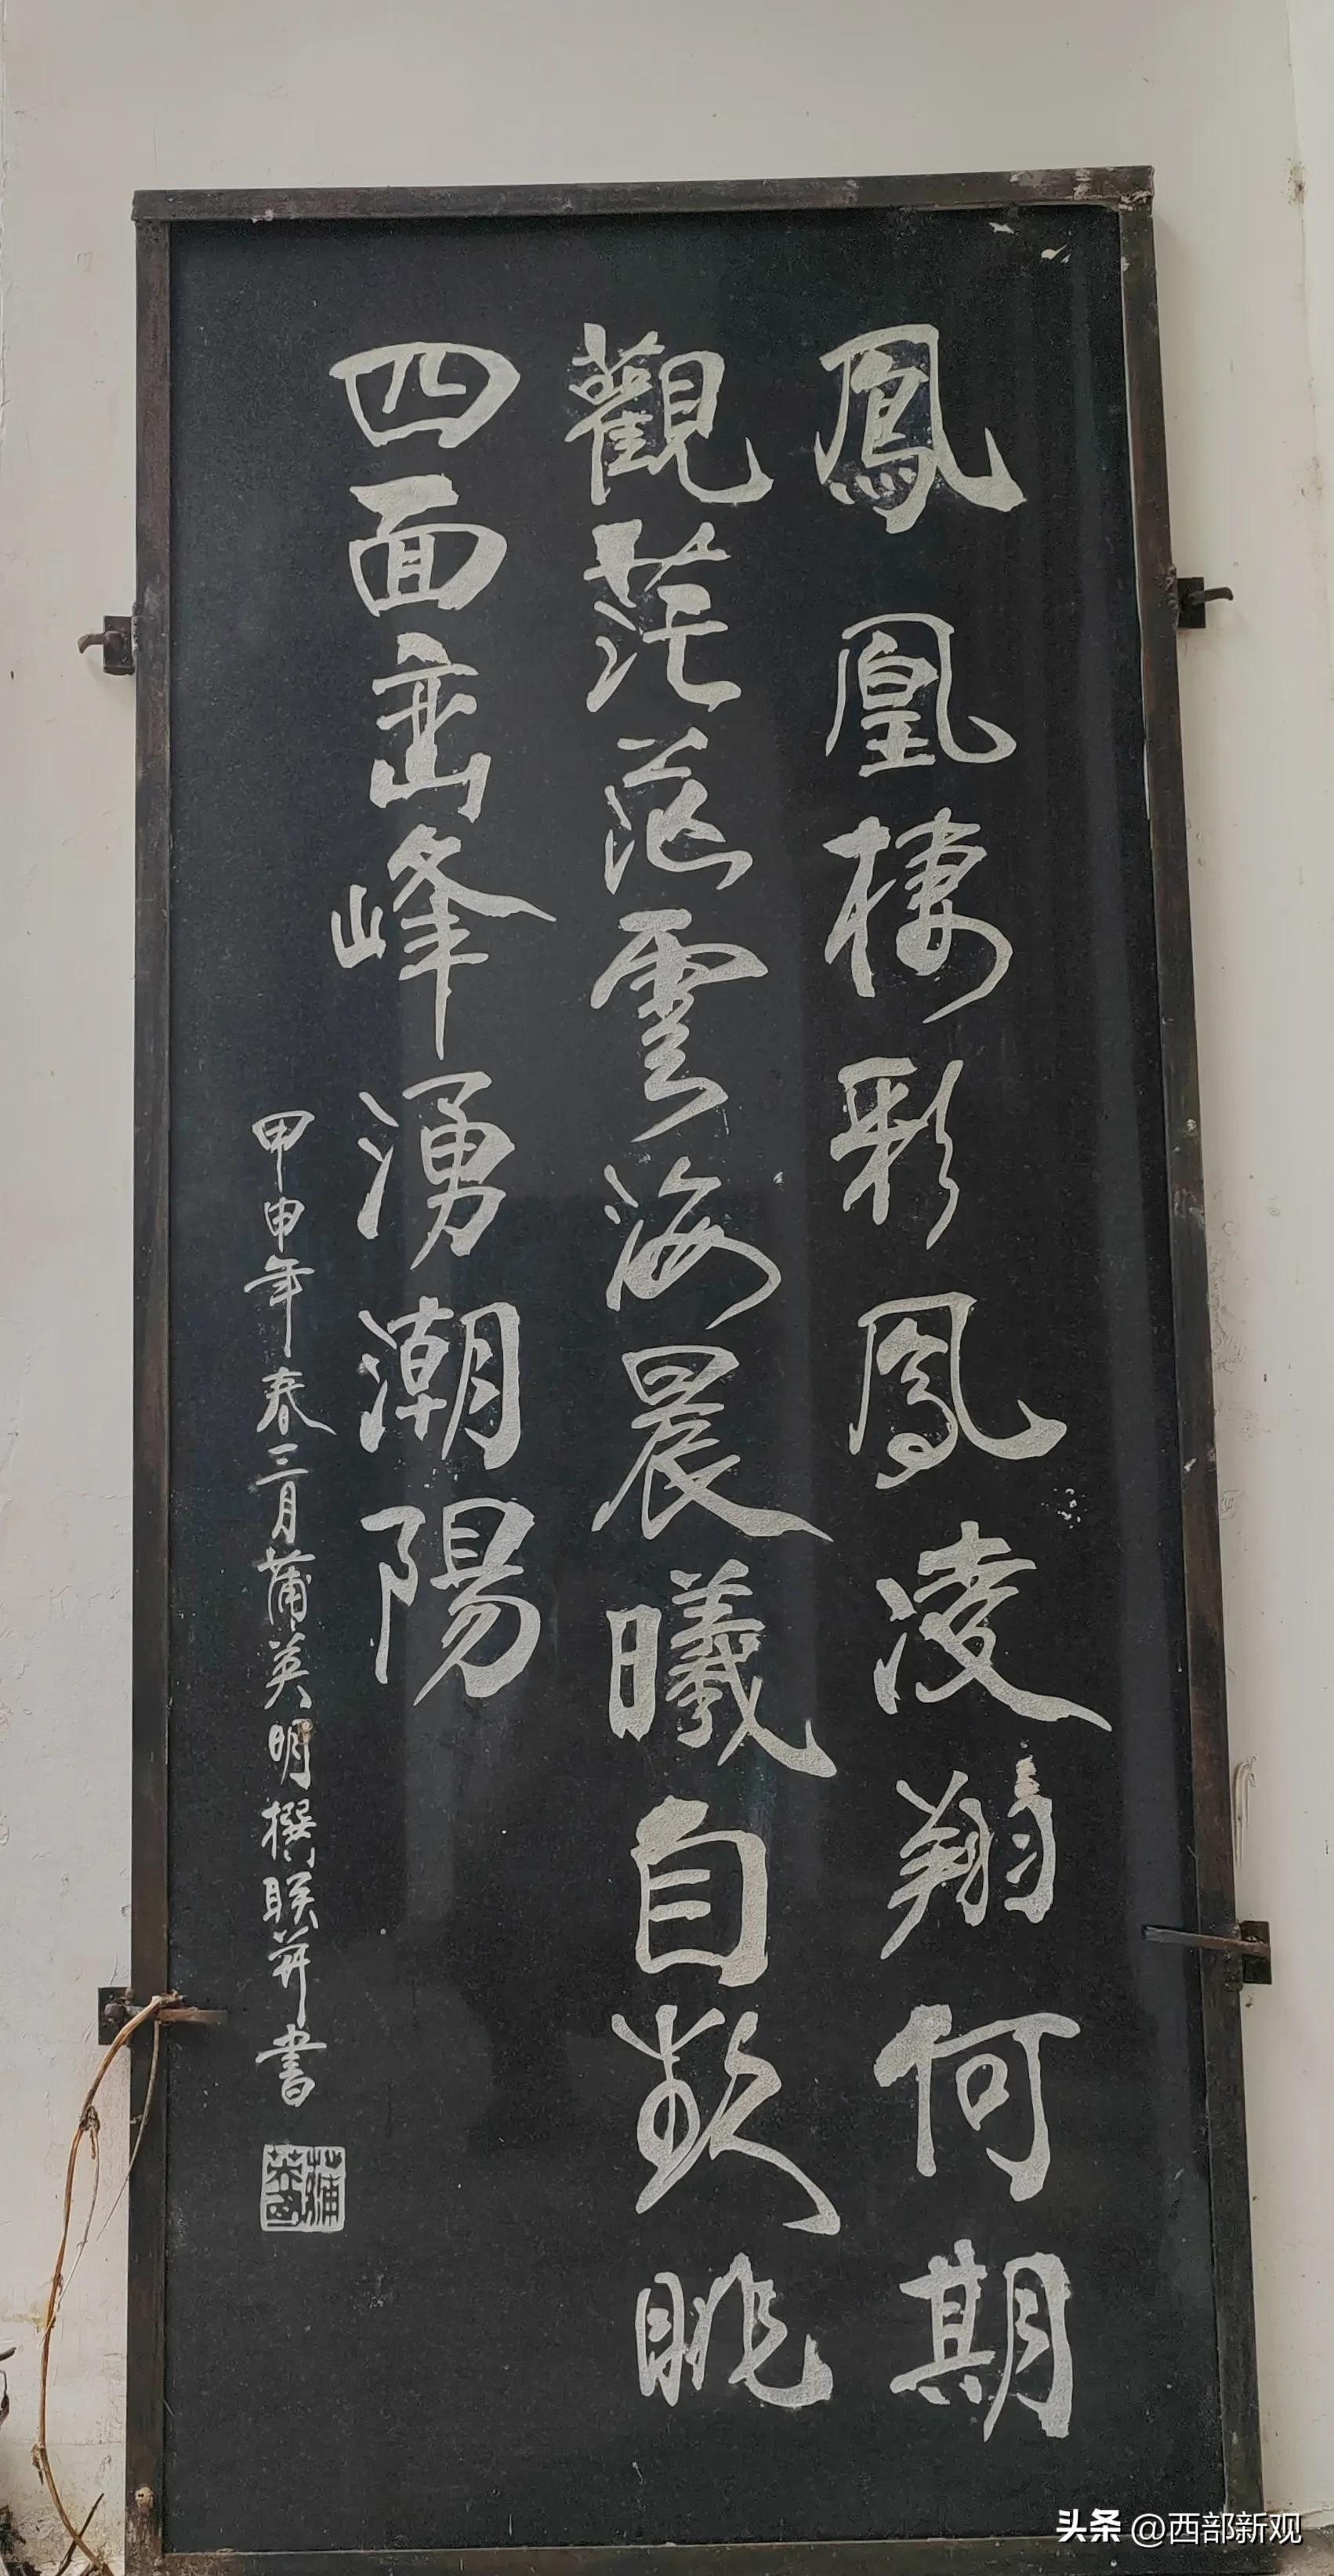 鳳凰棲彩鳳凌翔何期
觀茫茫雲海晨曦自欸眺
四面峦峰湧潮陽
甲申年春三月蒲英明撰联并書
蒲英明
头条 @西部新观